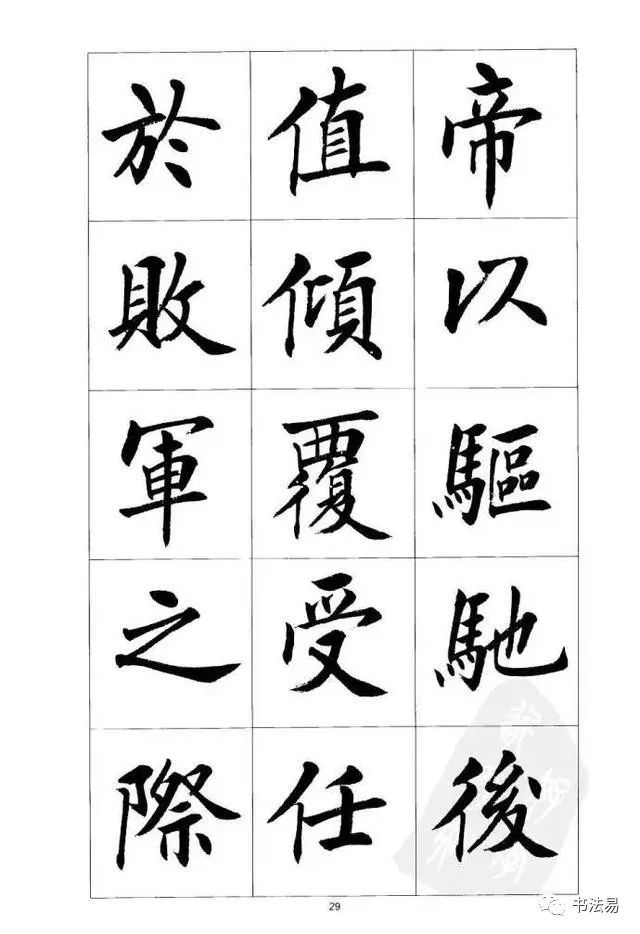 帝以驅馳後
值傾覆受任
於敗軍之際
29
书法易